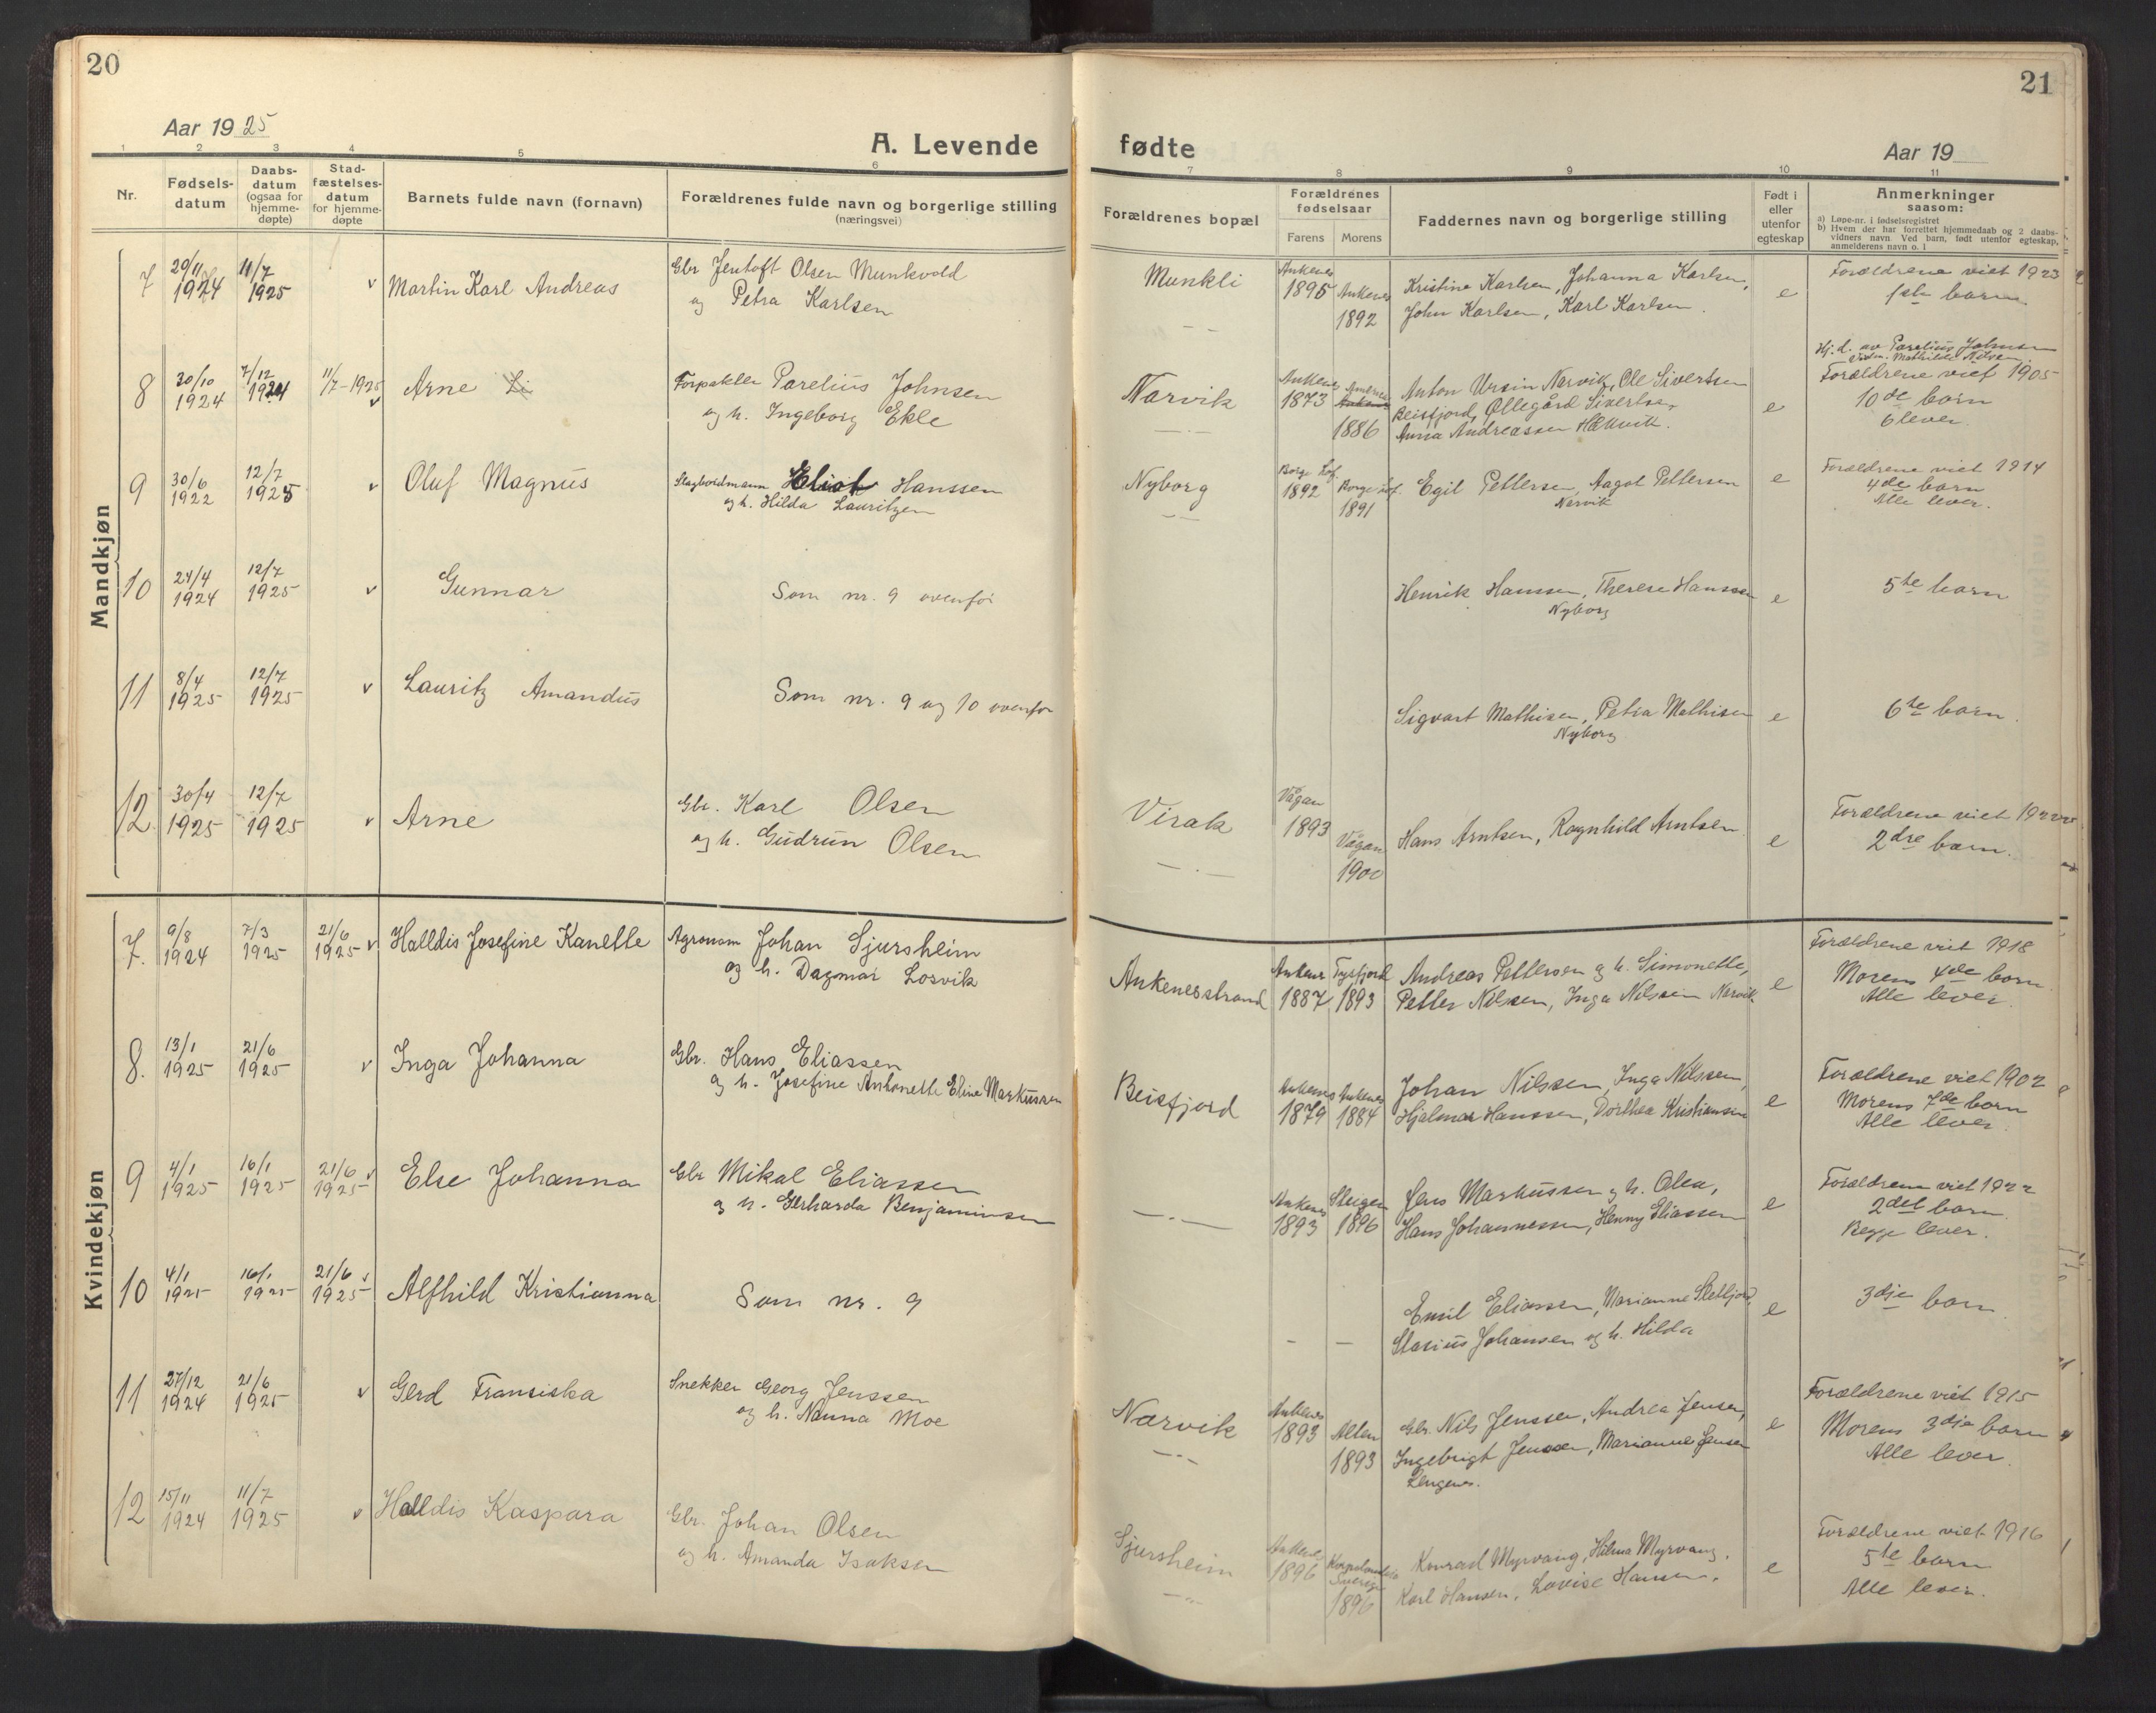 20
Aar 1925
A. Levende
1 2 3 4 5 6
Nr.
Fødsels-
datum
Daabs-
datum
(ogsaa for
hjemme-
døpte)
Stad-
fæstelses-
datum
for hjemme-
døpte
Barnets fulde navn (fornavn)
Forældrenes fulde navn og borgerlige stilling
(næringsvei)
Mandkjøn
7 29/11 1924 11/7 1925 v Martin Karl Andreas
Gbr Jentoft Olsen Munkvold
og Petra Karlsen
8 30/10 1924 7/12 1924 11/7-1925 v Arne
Forpakter Parelius Johnsen
og h. Ingeborg Ekle
9 30/6 1922 12/7 1925 v Oluf Magnus
Hanssen
og h. Hilda Lauritzen
10 24/4 1924 12/7 1925 v Gunnar
Som nr. 9 ovenfor
11 8/4 1925 12/7 1925 v Lauritz Amandus
Som nr. 9 og 10 ovenfor
12 30/4 1925 12/7 1925 v Arne
Gbr. Karl Olsen
og h. Gudrun Olsen
Kvindekjøn
7. 9/8 1924 7/3 1925 21/6 1925 v Halldis Josefine Kanelle
Agronom Johan Sjursheim
og h. Dagmar Losvik
8. 13/1 1925 21/6 1925 v Inga Johanna
Gbr. Hans Eliassen
og h. Josefine Antonette Eline Markussen
9 4/1 1925 16/1 1925 21/6 1925 v Else Johanna
Gbr Mikal Eliassen
og h. Gerharda Benjaminsen
10 4/1 1925 16/1 1925 21/6 1925 v Alfhild Kristianna
Som nr. 9
11 27/12 1924 21/6 1925 v Gerd Fransiska
Snekker Georg Jenssen
og h. Nanna Moe
12 15/11 1924 11/7 1925 v Halldis Kaspara
Gbr. Johan Olsen
og h. Amanda Isaksen
21
fødte
Aar 19
7 8 9 10 11
Forældrenes bopæl
Forældrenes
fødselsaar
Farens Morens
Faddernes navn og borgerlige stilling
Født i
eller
utenfor
egteskap
Anmerkninger
saasom:
a) Løpe-nr. i fødselsregistret
b) Hvem der har forrettet hjemmedaab og 2 daabs-
vidners navn. Ved barn, født utenfor egteskap,
anmelderens navn o. l
Munkli
Ankenes 1895 Ankenes 1892
Kristine Karlsen, Johanna Karlsen,
John Karlsen, Karl Karlsen.
e
Forældrene viet 1923
1ste barn
Narvik
Ankenes 1873
1886
Anton Ursin Narvik, Ole Sivertsen
Beisfjord, Øllegård Sivertsen,
Anna Andreassen Håkvik.
e
Hj.d. av Parelius Johnsen
Mathilde Nilsen.
Forældrene viet 1905
10de barn
6 lever.
Nyborg
Borge Lof. 1892 Borge Lof. 1891
Egil Pettersen, Aagot Pettersen
Narvik
e
Forældrene viet 1914
4de barn
Alle lever.
Henrik Hanssen, Therese Hanssen
Nyborg
e
5te barn
Sigvart Mathisen, Petra Mathisen
Nyborg
e
6te barn.
Virak
Vågan 1893 Vågan 1900
Hans Arntsen, Ragnhild Arntsen
e
Forældrene viet 1922
2dre barn.
Ankenesstrand
Ankenes 1887 Tysfjord 1893
Andreas Pettersen og h. Simonette,
Petter Nilssen, Inga Nilssen Narvik.
e
Forældrene viet 1918
Morens 4de barn.
Alle lever.
Beisfjord
Ankenes 1879 Ankenes 1884
Johan Nilssen, Inga Nilssen,
Hjalmar Hanssen, Dorthea Kristiansen
e
Forældrene viet 1902
Morens 7de barn
Alle lever.
Ankenes 1893 Steigen 1896
Jens Markussen og h. Olea,
Hans Johannessen, Henny Eliassen
e
Forældrene viet 1922
2det barn.
Begge lever.
Emil Eliassen, Marianne Slettjord,
Stasius Johansen og h. Hilda
e
3dje barn
Narvik
Ankenes 1893 Alten 1893
Gbr. Nils Jenssen, Andrea Jensen,
Ingebrigt Jenssen, Marianne Jensen
Lengenes.
e
Forældrene viet 1915
Morens 3dje barn
Alle lever.
Sjursheim
Ankenes 1896
Sverige 1896
Konrad Myrvang, Hilma Myrvang,
Karl Hansen, Lovise Hansen.
e
Forældrene viet 1916
5te barn
Alle lever.